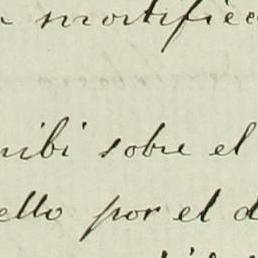 mortific
nibi sobre el
ello por el d